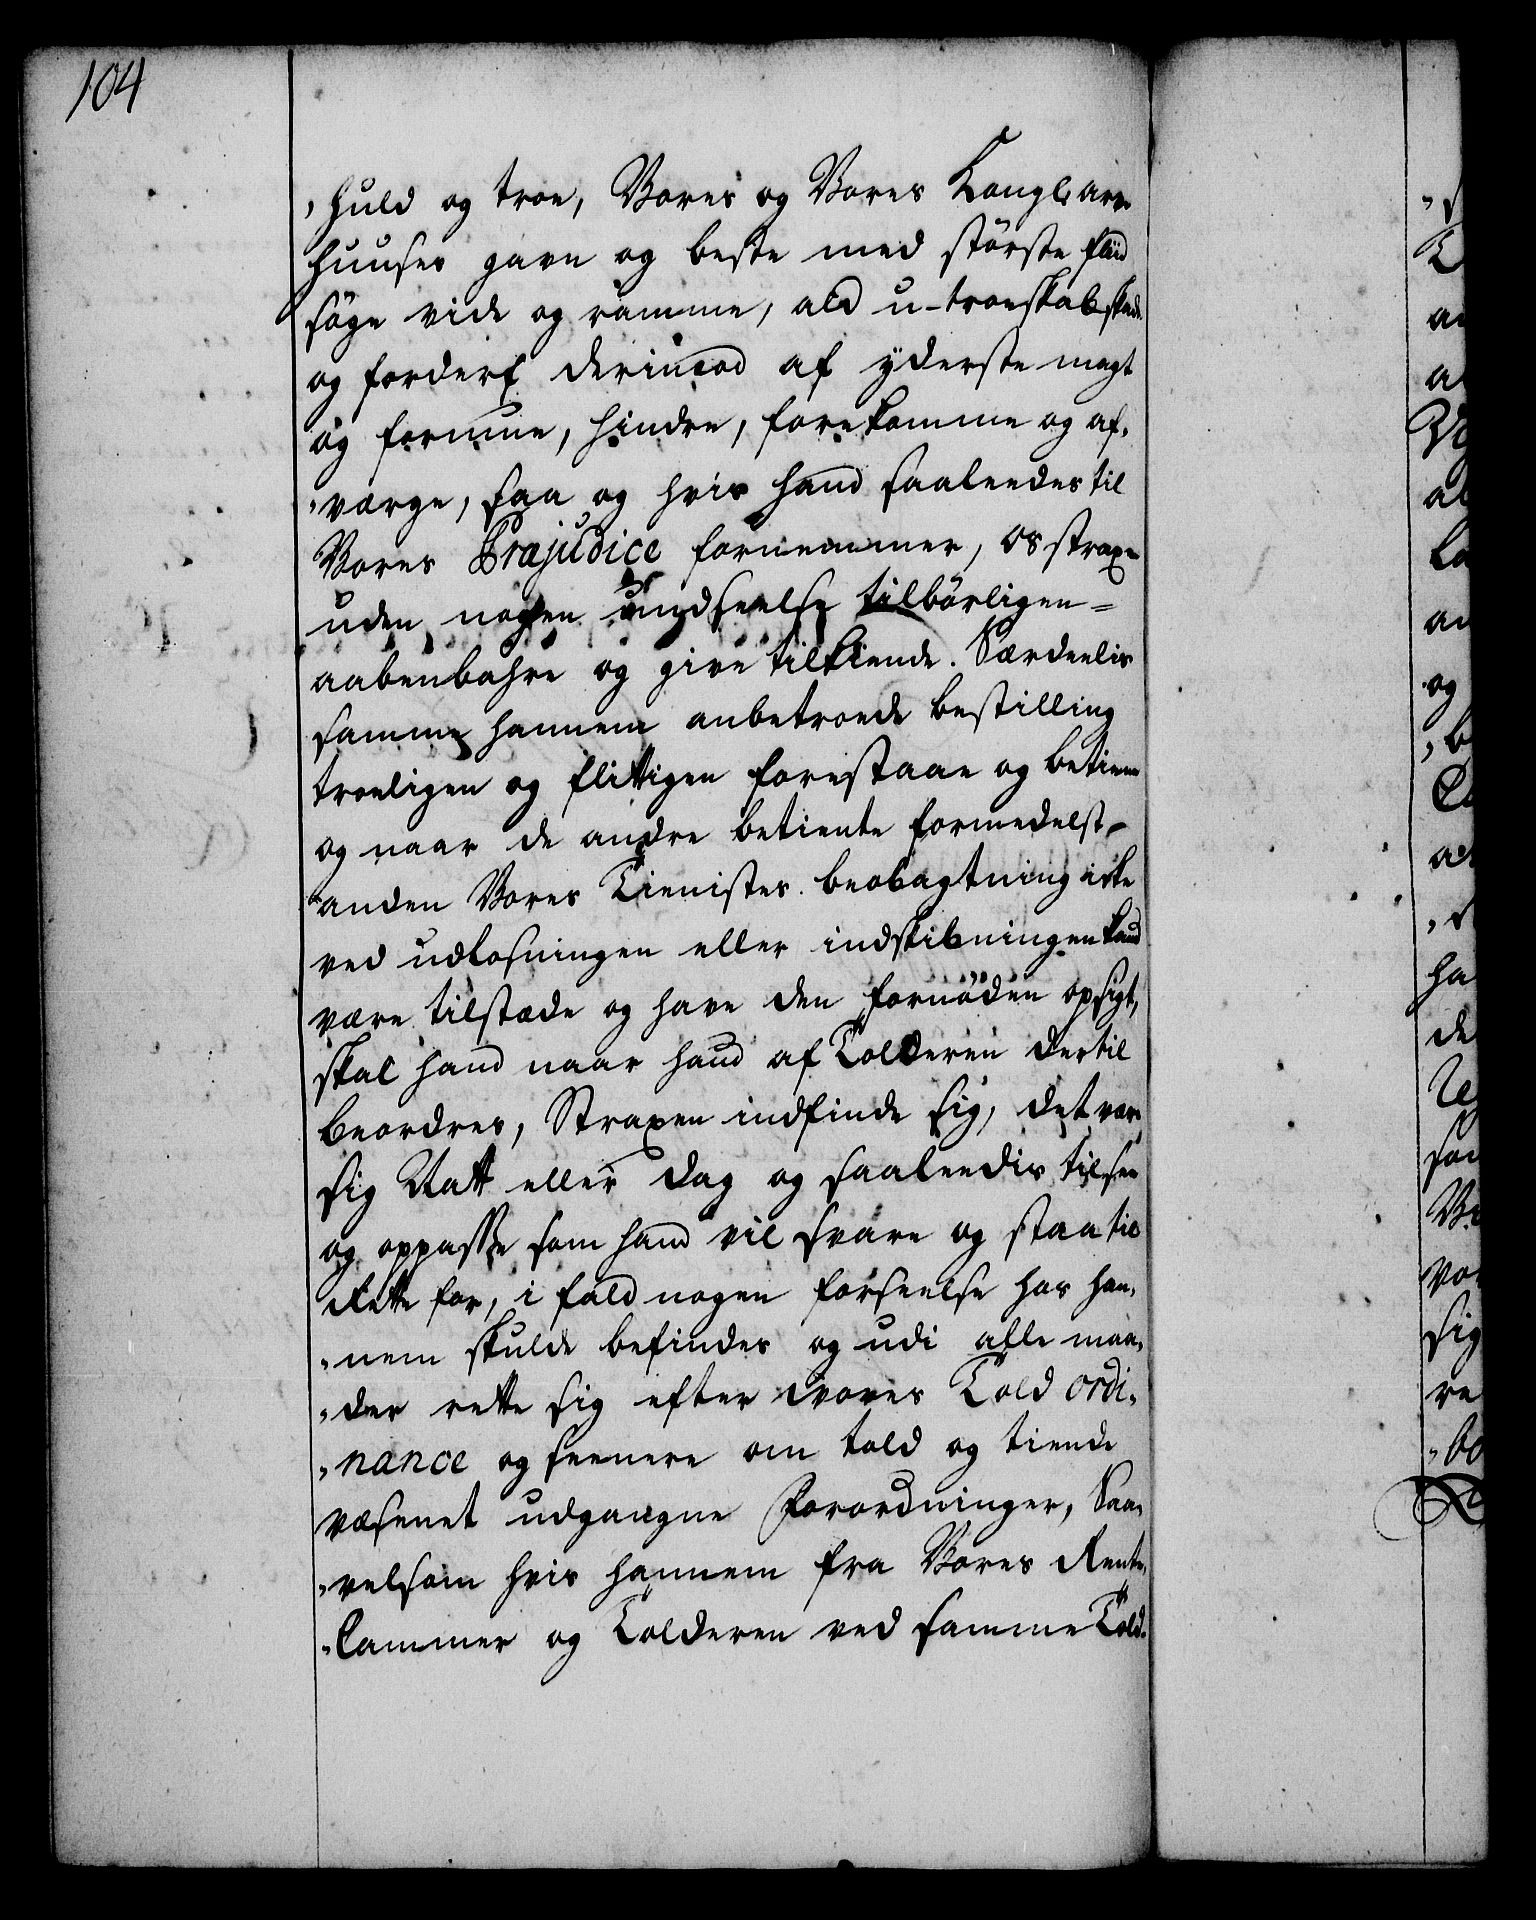 104
, huld og troe, Vores og Vores Kongl: arve
huuses gavn og beste med störste fliid
söge vide og ramme, ald u-troeskab skade
og forderf derimod af yderste magt
og formue, hindre, forekomme og af,
,værge, saa og hvis hand saaleedes til
Vores Præjudice fornemmer, os straxen
uden nogen undseelse tilbörligen =
aabenbahre og give tilkiende. Særdeelis
samme hannem anbetroede bestilling
troeligen og flittigen forestaae og betiene
og naar de andre betiente formedelst
anden Vores Tienistes beobagtning icke
ved udlosningen eller indskibningen kand
være tilstæde og have den fornöden opsigt,
skal hand naar hand af Tolderen dertil
beordres, Straxen indfinde sig, det være
sig Natt eller Dag og saaleedis tilsee
og oppasse som hand vil svare og staa til
Rette for, i fald nogen forseelse hos han,
,nem skulde befindes og udi alle maa,
,der rette sig efter vores Told ordi,
,nance og seenere om told og tiende
væsenet udgangne Forordninger, Saa,
,velsom hvis hannem fra Vores Rente,
,Cammer og Tolderen ved samme Told,